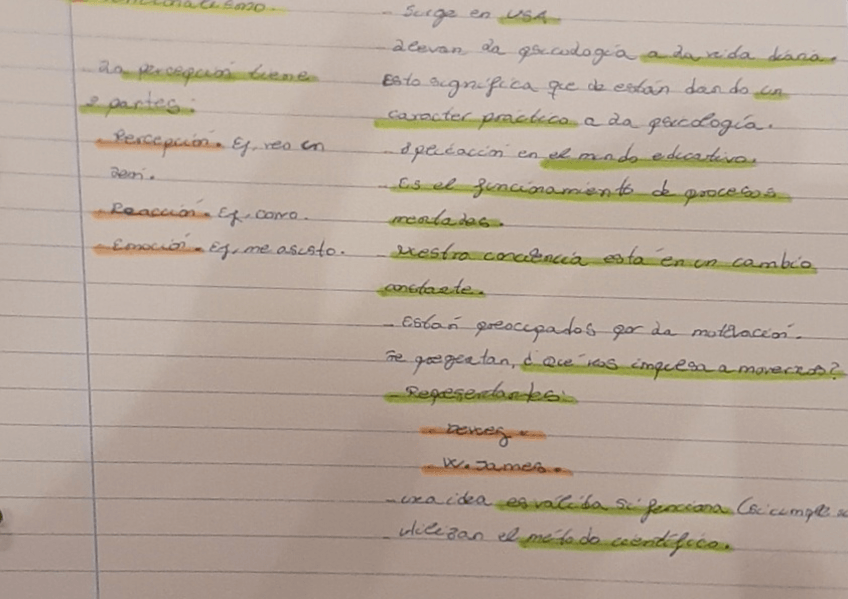 Surge en USA
Llevan la psicología a la vida diaria.
Esto significa que le están dando un
caracter práctico a la psicología.
- Aplicación en el mundo educativo.
- Es el funcionamiento de procesos
mentales.
- Nuestra conciencia está en un cambio
constante.
- Están preocupados por la motivación.
Se preguntan, ¿Qué nos impulsa a movernos?
- Representantes:
- Dewey.
- W. James.
- una idea es válida si funciona (si cumple
- utilizan el método científico.
La percepción tiene
3 partes:
- Percepción. Ej, veo un
león.
- Reacción. Ej, corro.
- Emoción. Ej, me asusto.